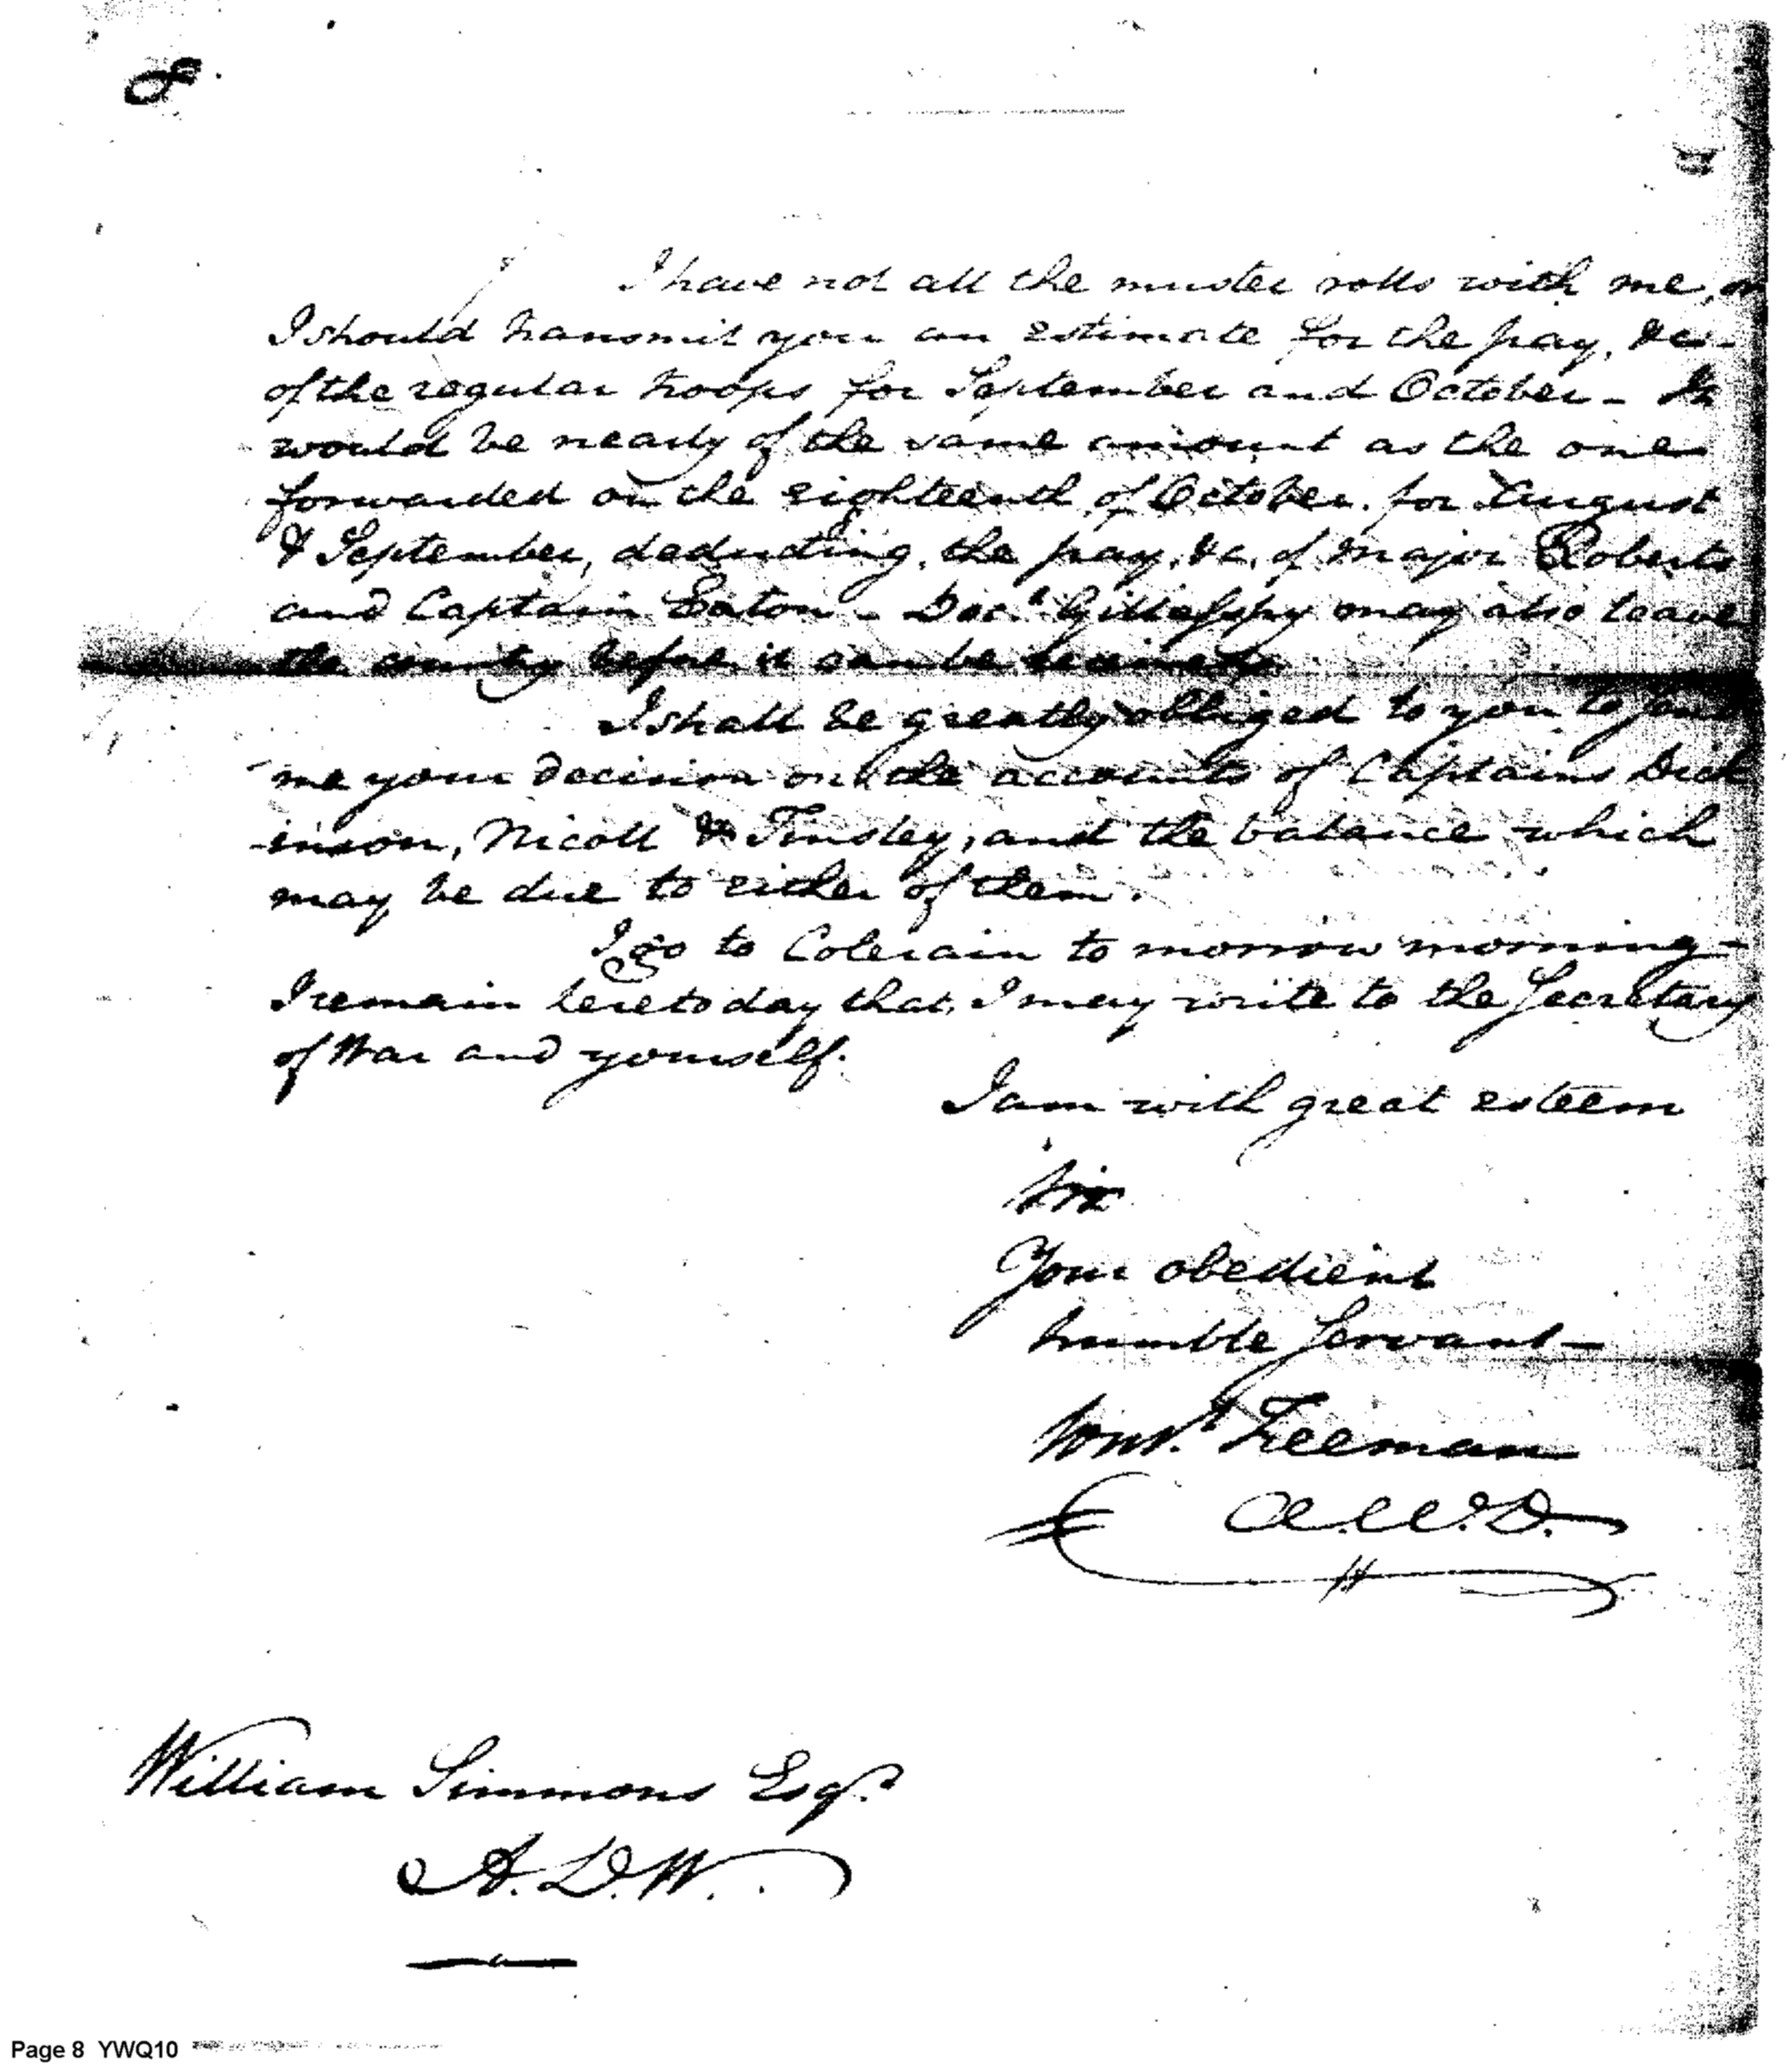 8
I have not all the muster rolls with me, or
I should transmit you an estimate for the pay, &c.
of the regular troops for September and October - It
would be nearly of the same amount as the one
forwarded on the eighteenth of October, for August
& September, deducting, the pay, &c, of Major Roberts
and Captain Eaton - Doct. Gillasspy may also leave
the country before it can be received.
I shall be greatly obliged to you to send
me your decision on the accounts of Captains Dick
-inson, Nicoll & Tinsley, and the balance which
may be due to either of them.
I go to Colerain to morrow morning -
I remain here to day that, I may write to the Secretary
of War and yourself.
I am with great esteem
Sir
Your obedient
humble Servant -
Const. Freeman
A.W.D.
William Simmons Esqr.
A.D.W.
Page 8 YWQ10